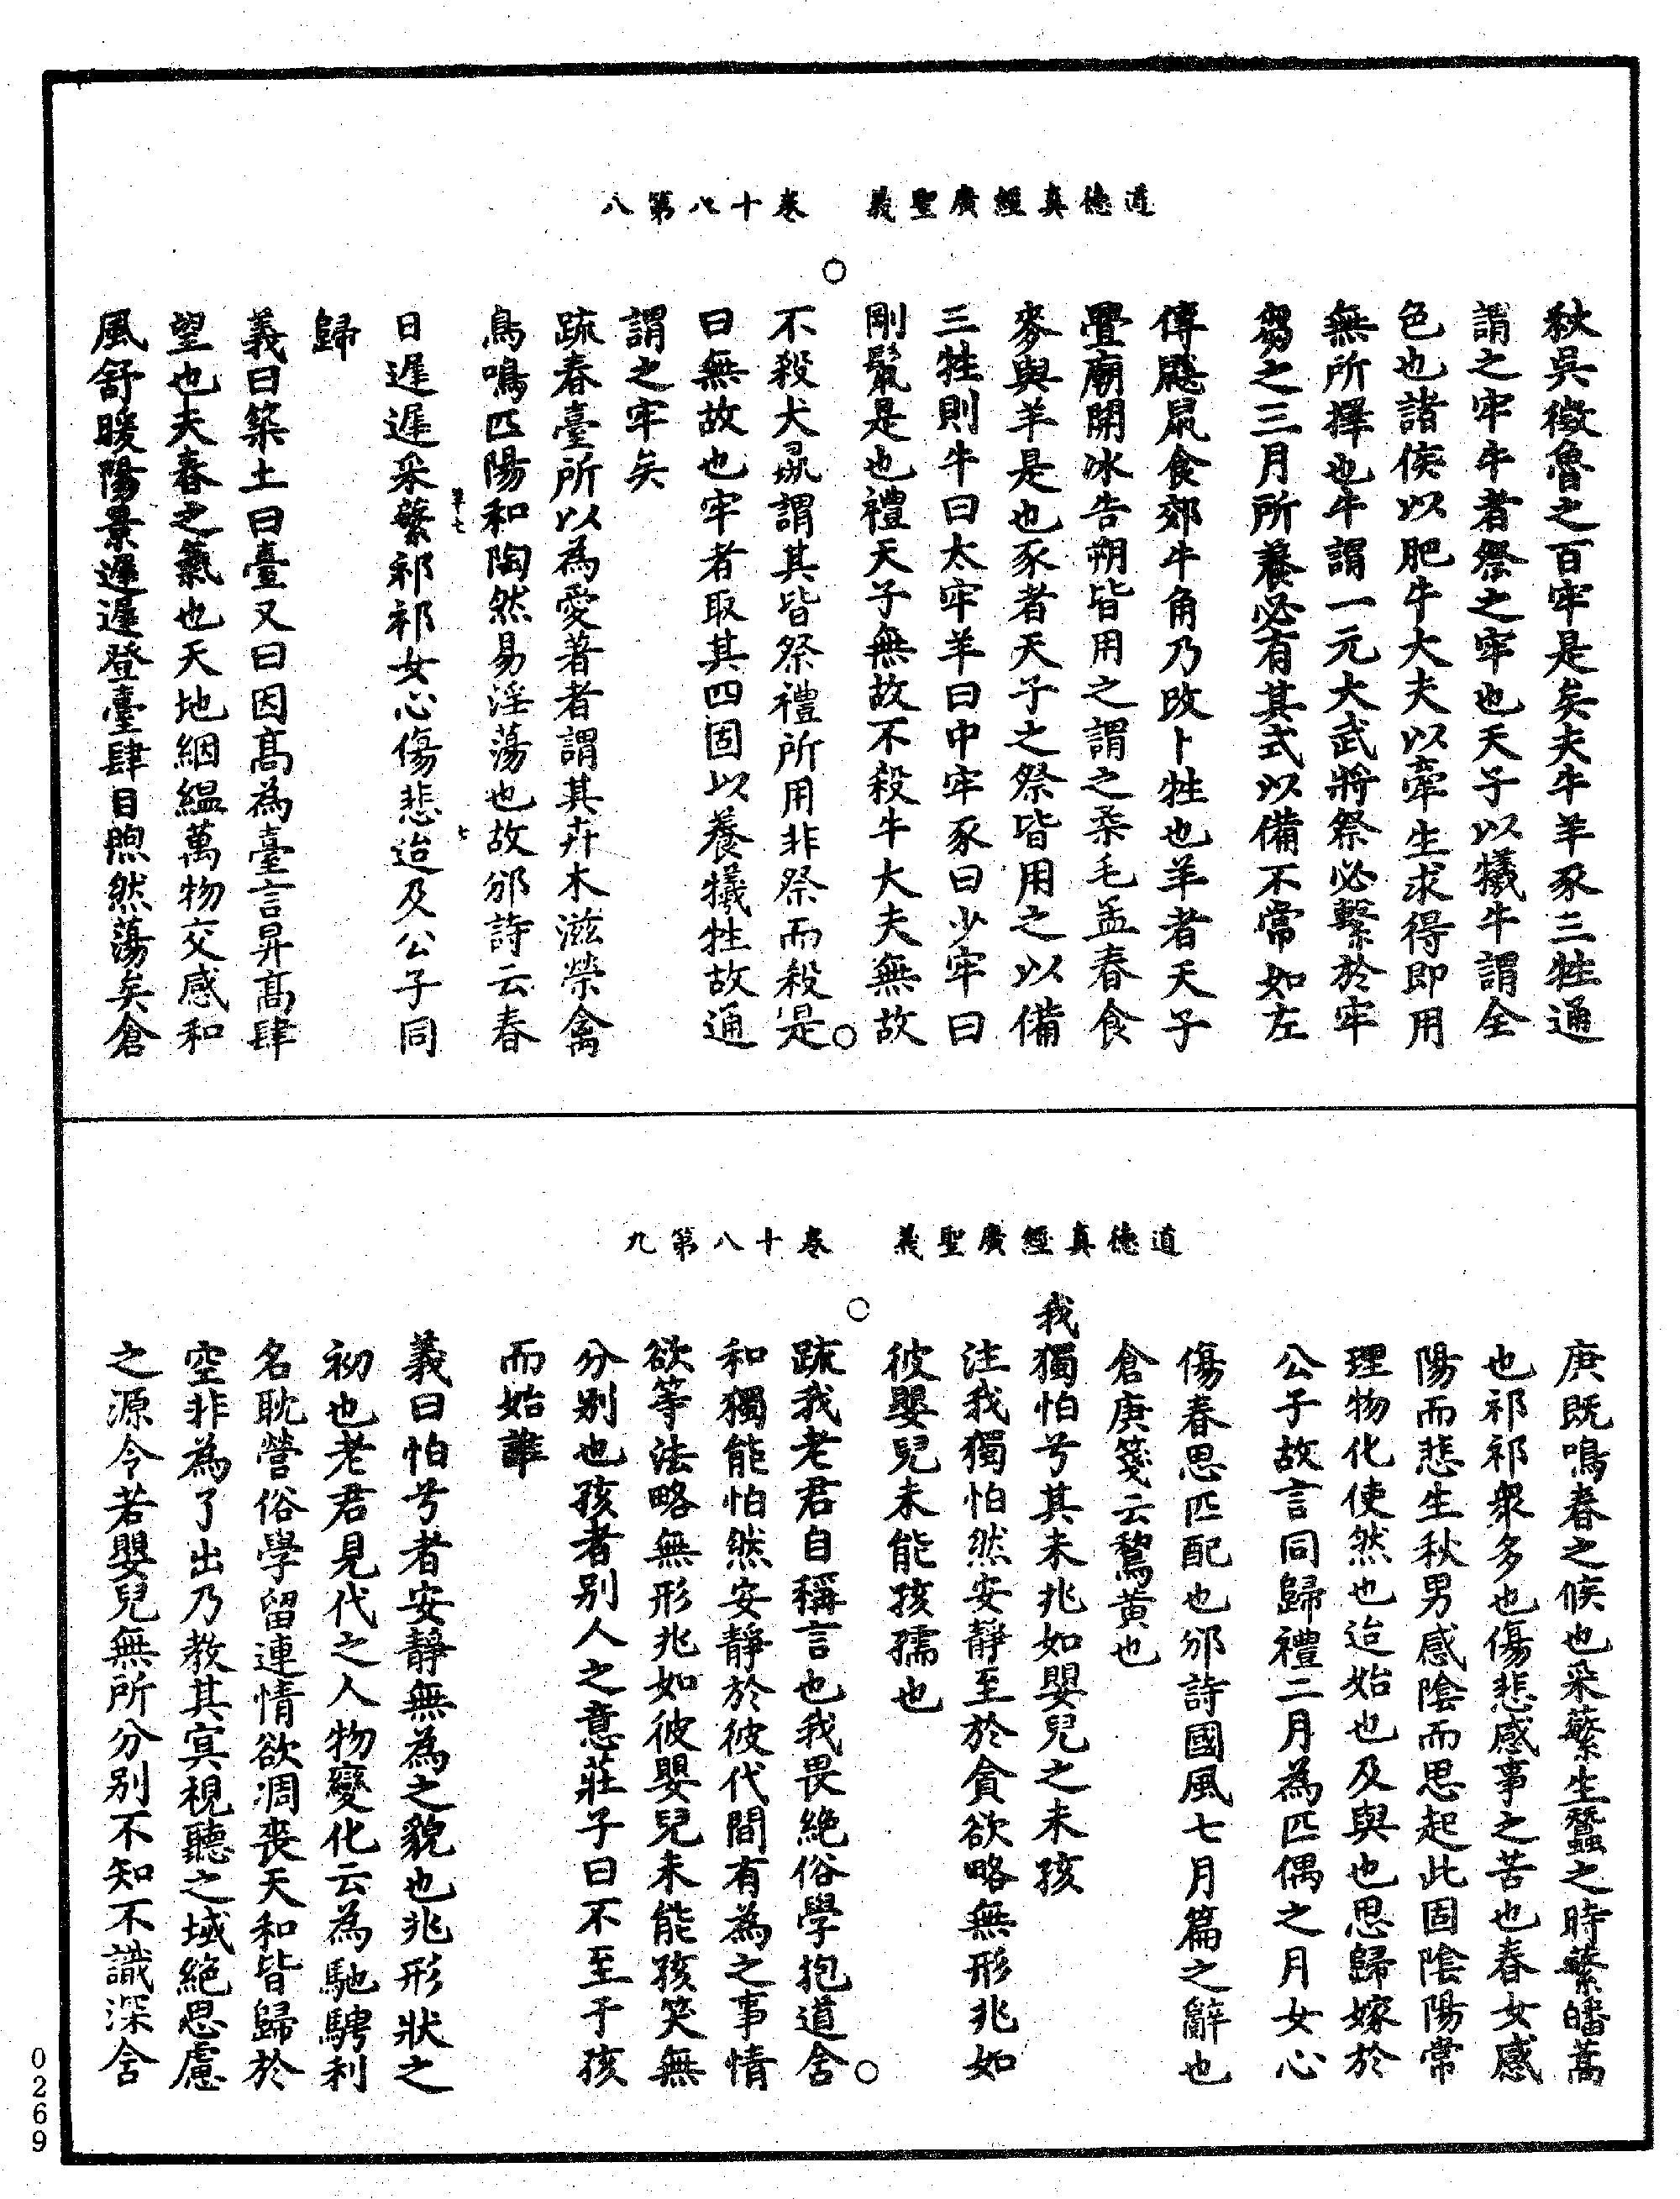 道德真經廣聖義　卷十八第八
秋吳徵魯之百牢是矣夫牛羊豕三牲通
謂之牢牛者祭之牢也天子以犧牛謂全
色也諸侯以肥牛大夫以牽生求得即用
無所擇也牛謂一元大武將祭必繫於牢
芻之三月所養必有其式以備不常如左
傳鼷鼠食郊牛角乃改卜牲也羊者天子
疊廟開冰告朔皆用之謂之柔毛孟春食
麥與羊是也豕者天子之祭皆用之以備
三牲則牛曰太牢羊曰中牢豕曰少牢曰
剛鬣是也禮天子無故不殺牛大夫無故
不殺犬彘謂其皆祭禮所用非祭而殺是
曰無故也牢者取其四固以養犧牲故通
謂之牢矣
疏春臺所以為愛著者謂其卉木滋榮禽
鳥鳴匹陽和陶然易淫蕩也故邠詩云春
日遲遲采蘩祁祁女心傷悲迨及公子同
歸
義曰築土曰臺又曰因髙為臺言昇髙肆
望也夫春之氣也天地絪縕萬物交感和
風舒暖陽景遲遲登臺肆目煦然蕩矣倉
道德真經廣聖義　卷十八第九
庚既鳴春之候也采蘩生蠶之時蘩皤蒿
也祁祁衆多也傷悲感事之苦也春女感
陽而悲生秋男感陰而思起此固陰陽常
理物化使然也迨始也及與也思歸嫁於
公子故言同歸禮二月為匹偶之月女心
傷春思匹配也邠詩國風七月篇之辭也
倉庚箋云鶖黃也
我獨怕兮其未兆如嬰兒之未孩
注我獨怕然安靜至於貪欲略無形兆如
彼嬰兒未能孩孺也
疏我老君自稱言也我畏絶俗學抱道舍
和獨能怕然安靜於彼代間有為之事情
欲等法略無形兆如彼嬰兒未能孩笑無
分别也孩者别人之意莊子曰不至于孩
而始誰
義曰怕兮者安靜無為之貌也兆形狀之
初也老君見代之人物變化云為馳騁利
名耽營俗學留連情欲凋喪天和皆歸於
空非為了出乃教其寞視聽之域絕思慮
之源令若嬰兒無所分別不知不識深舍
0269